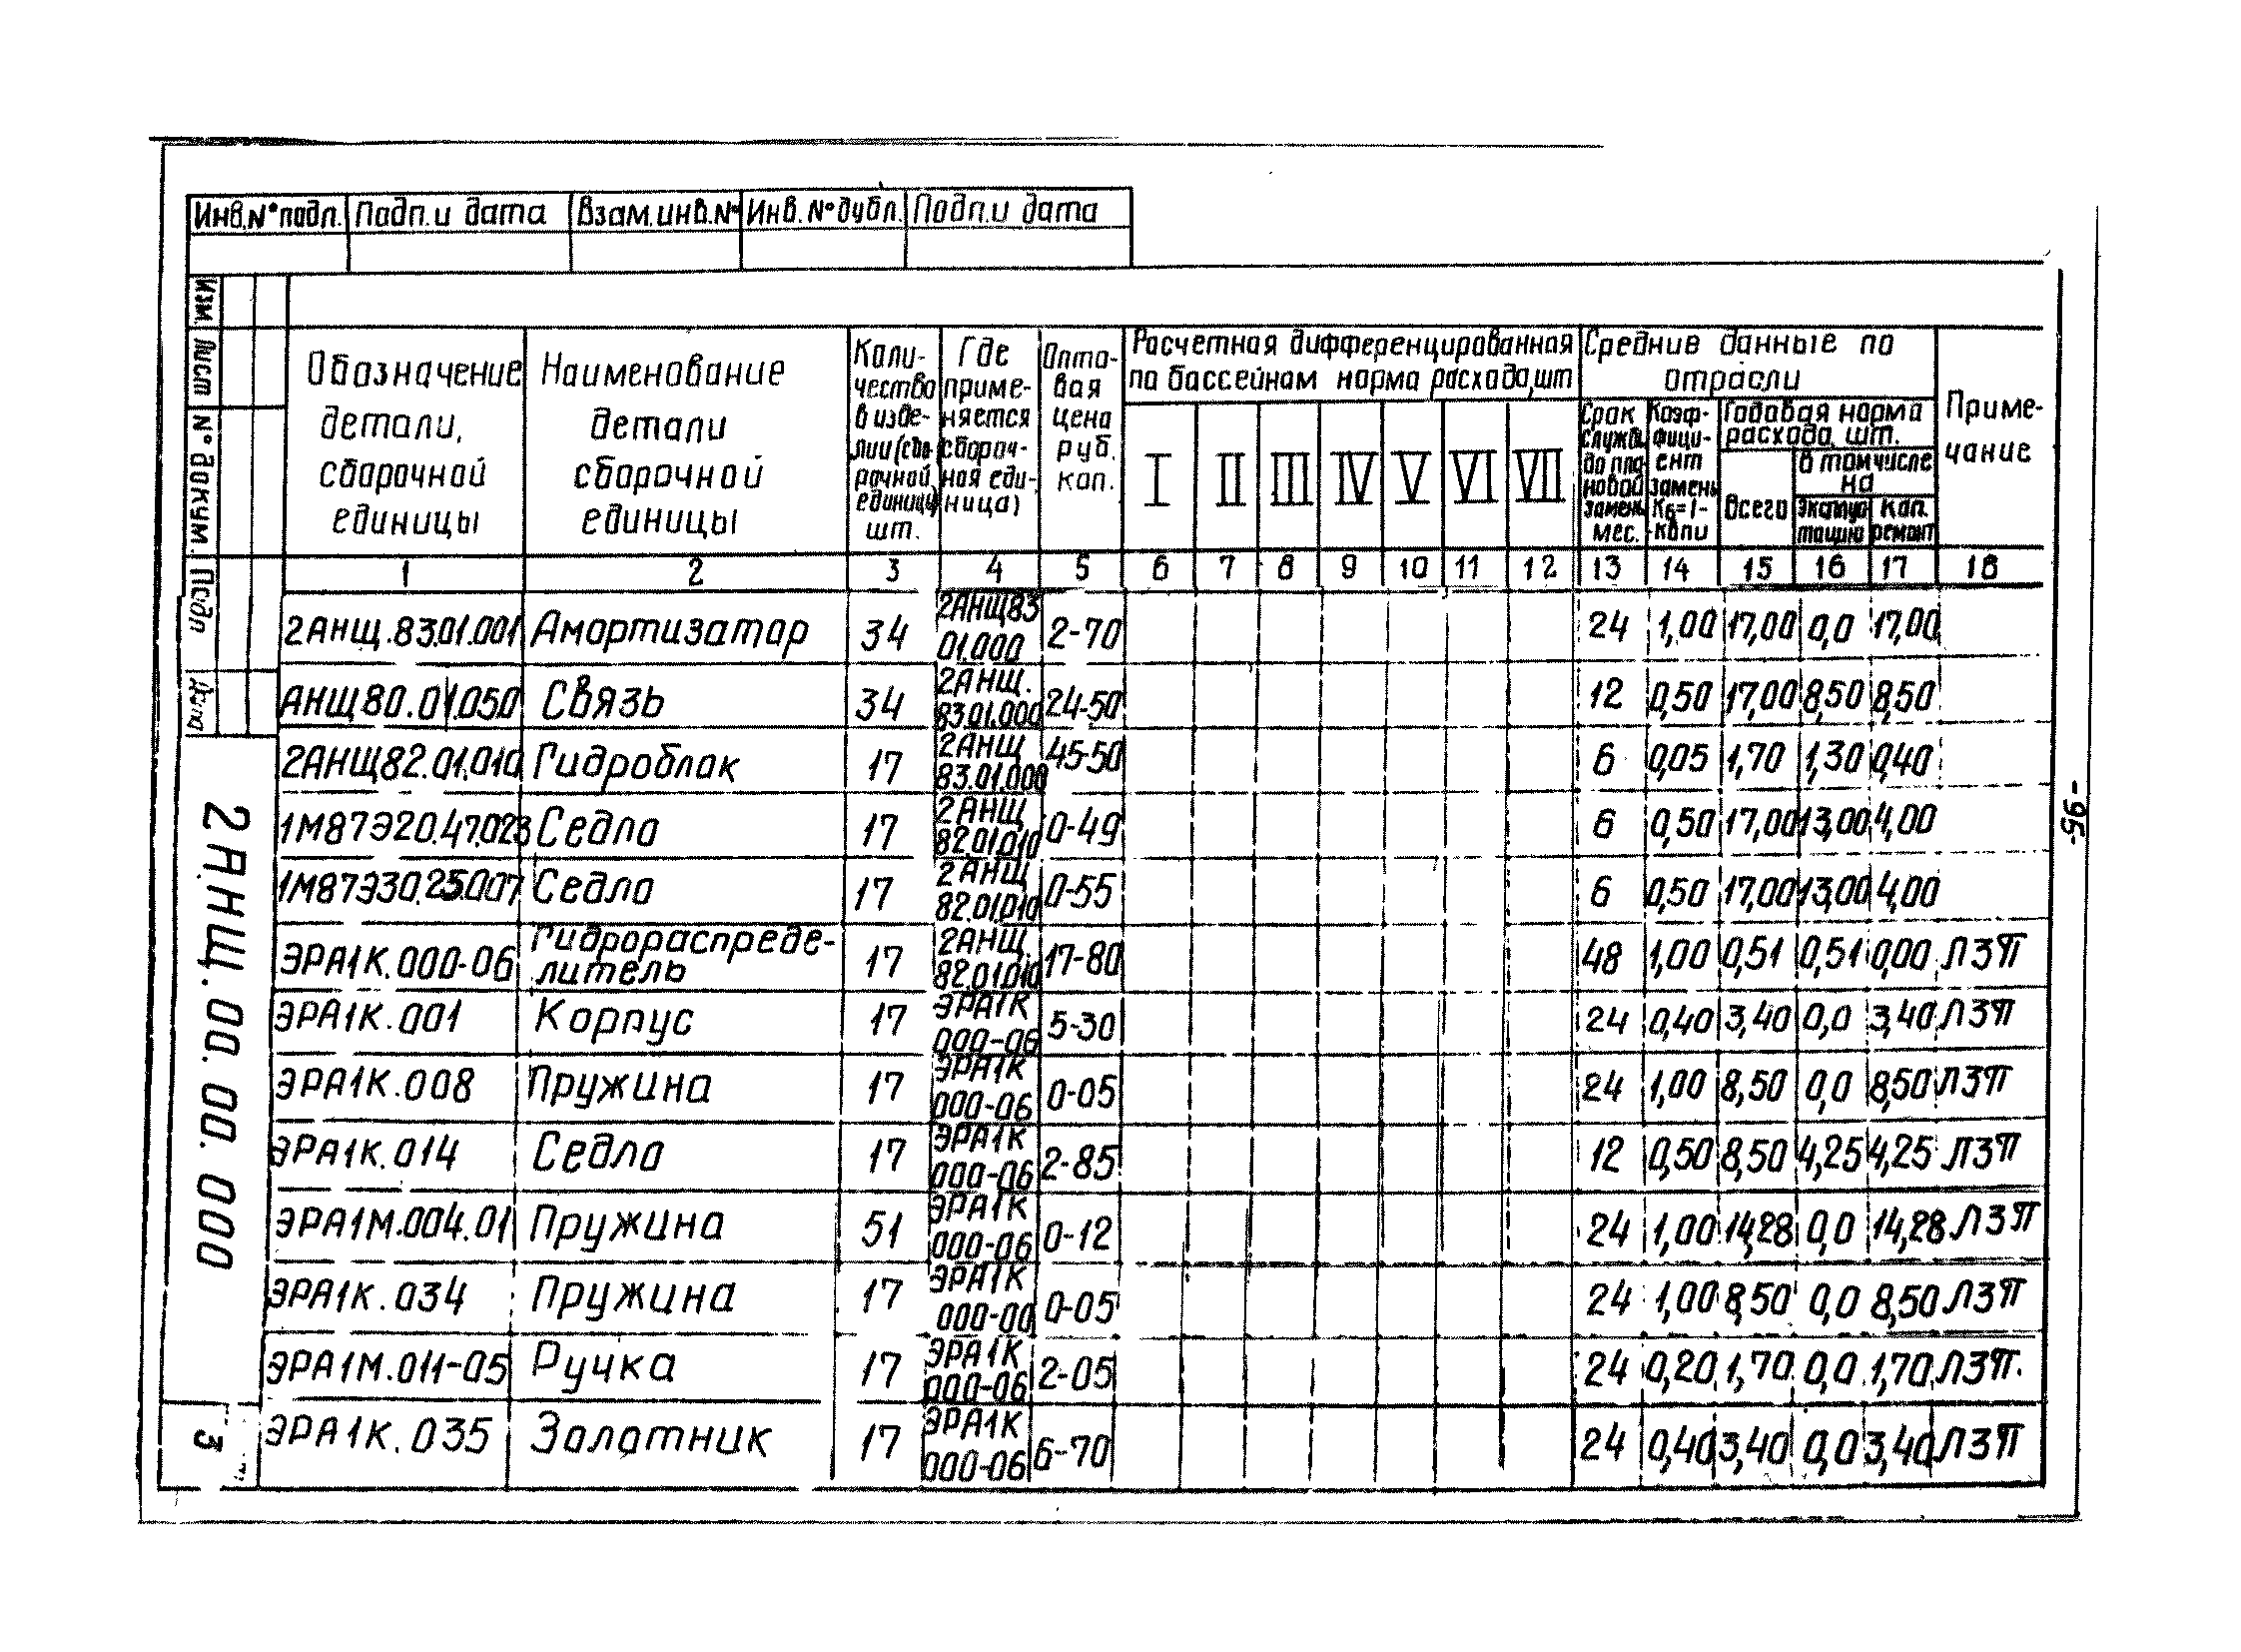 Инв.N°подл. Подп.и дата Взам.инв.N° Инв.N°дубл. Подп.и дата
Изм. Лист N° докум. Подп Дата
Обозначение детали, сборочной единицы
Наименование детали сборочной единицы
Количество в изделии (сборочной единице) шт.
Где применяется сборочная единица)
Оптовая цена руб. коп.
Расчетная дифференцированная по бассейнам норма расхода, шт
I II III IV V VI VII
Средние данные по отрасли
Срок службы до плановой замены мес.
Коэффициент замены
Годовая норма расхода, шт.
Всего
в том числе на
кап. ремонт
Примечание
1 2 3 4 5 6 7 8 9 10 11 12 13 14 15 16 17 18
2АНЩ.83.01.001 Амортизатор 34 2АНЩ83 01.000 2-70 24 1,00 17,00 0,0 17,00
АНЩ80.01.050 Связь 34 2АНЩ. 83.01.000 24-50 12 0,50 17,00 8,50 8,50
2АНЩ82.01.010 Гидроблок 17 2АНЩ 83.01.000 45-50 6 0,05 1,70 1,30 0,40
1М87Э20.47.023 Седло 17 2АНЩ 82.01.010 0-49 6 0,50 17,00 13,00 4,00
1М87Э30.25.007 Седло 17 2АНЩ 82.01.010 0-55 6 0,50 17,00 13,00 4,00
ЭРА1К.000-06 Гидрораспределитель 17 2АНЩ 82.01.010 17-80 48 1,00 0,51 0,51 0,00 ЛЗП
ЭРА1К.001 Корпус 17 ЭРА1К 000-06 5-30 24 0,40 3,40 0,0 3,40 ЛЗП
ЭРА1К.008 Пружина 17 ЭРА1К 000-06 0-05 24 1,00 8,50 0,0 8,50 ЛЗП
ЭРА1К.014 Седло 17 ЭРА1К 000-06 2-85 12 0,50 8,50 4,25 4,25 ЛЗП
ЭРА1М.004.01 Пружина 51 ЭРА1К 000-06 0-12 24 1,00 14,28 0,0 14,28 ЛЗП
ЭРА1К.034 Пружина 17 ЭРА1К 000-00 0-05 24 1,00 8,50 0,0 8,50 ЛЗП
ЭРА1М.011-05 Ручка 17 ЭРА1К 000-06 2-05 24 0,20 1,70 0,0 1,70 ЛЗП.
ЭРА1К.035 Золотник 17 ЭРА1К 000-06 6-70 24 0,40 3,40 0,0 3,40 ЛЗП
2АНЩ.00.00.000
3
-95-